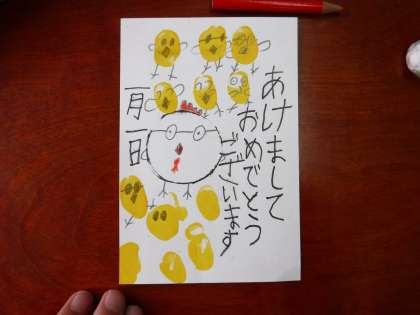 あけまして
おめでとう
ございます
一月
一日